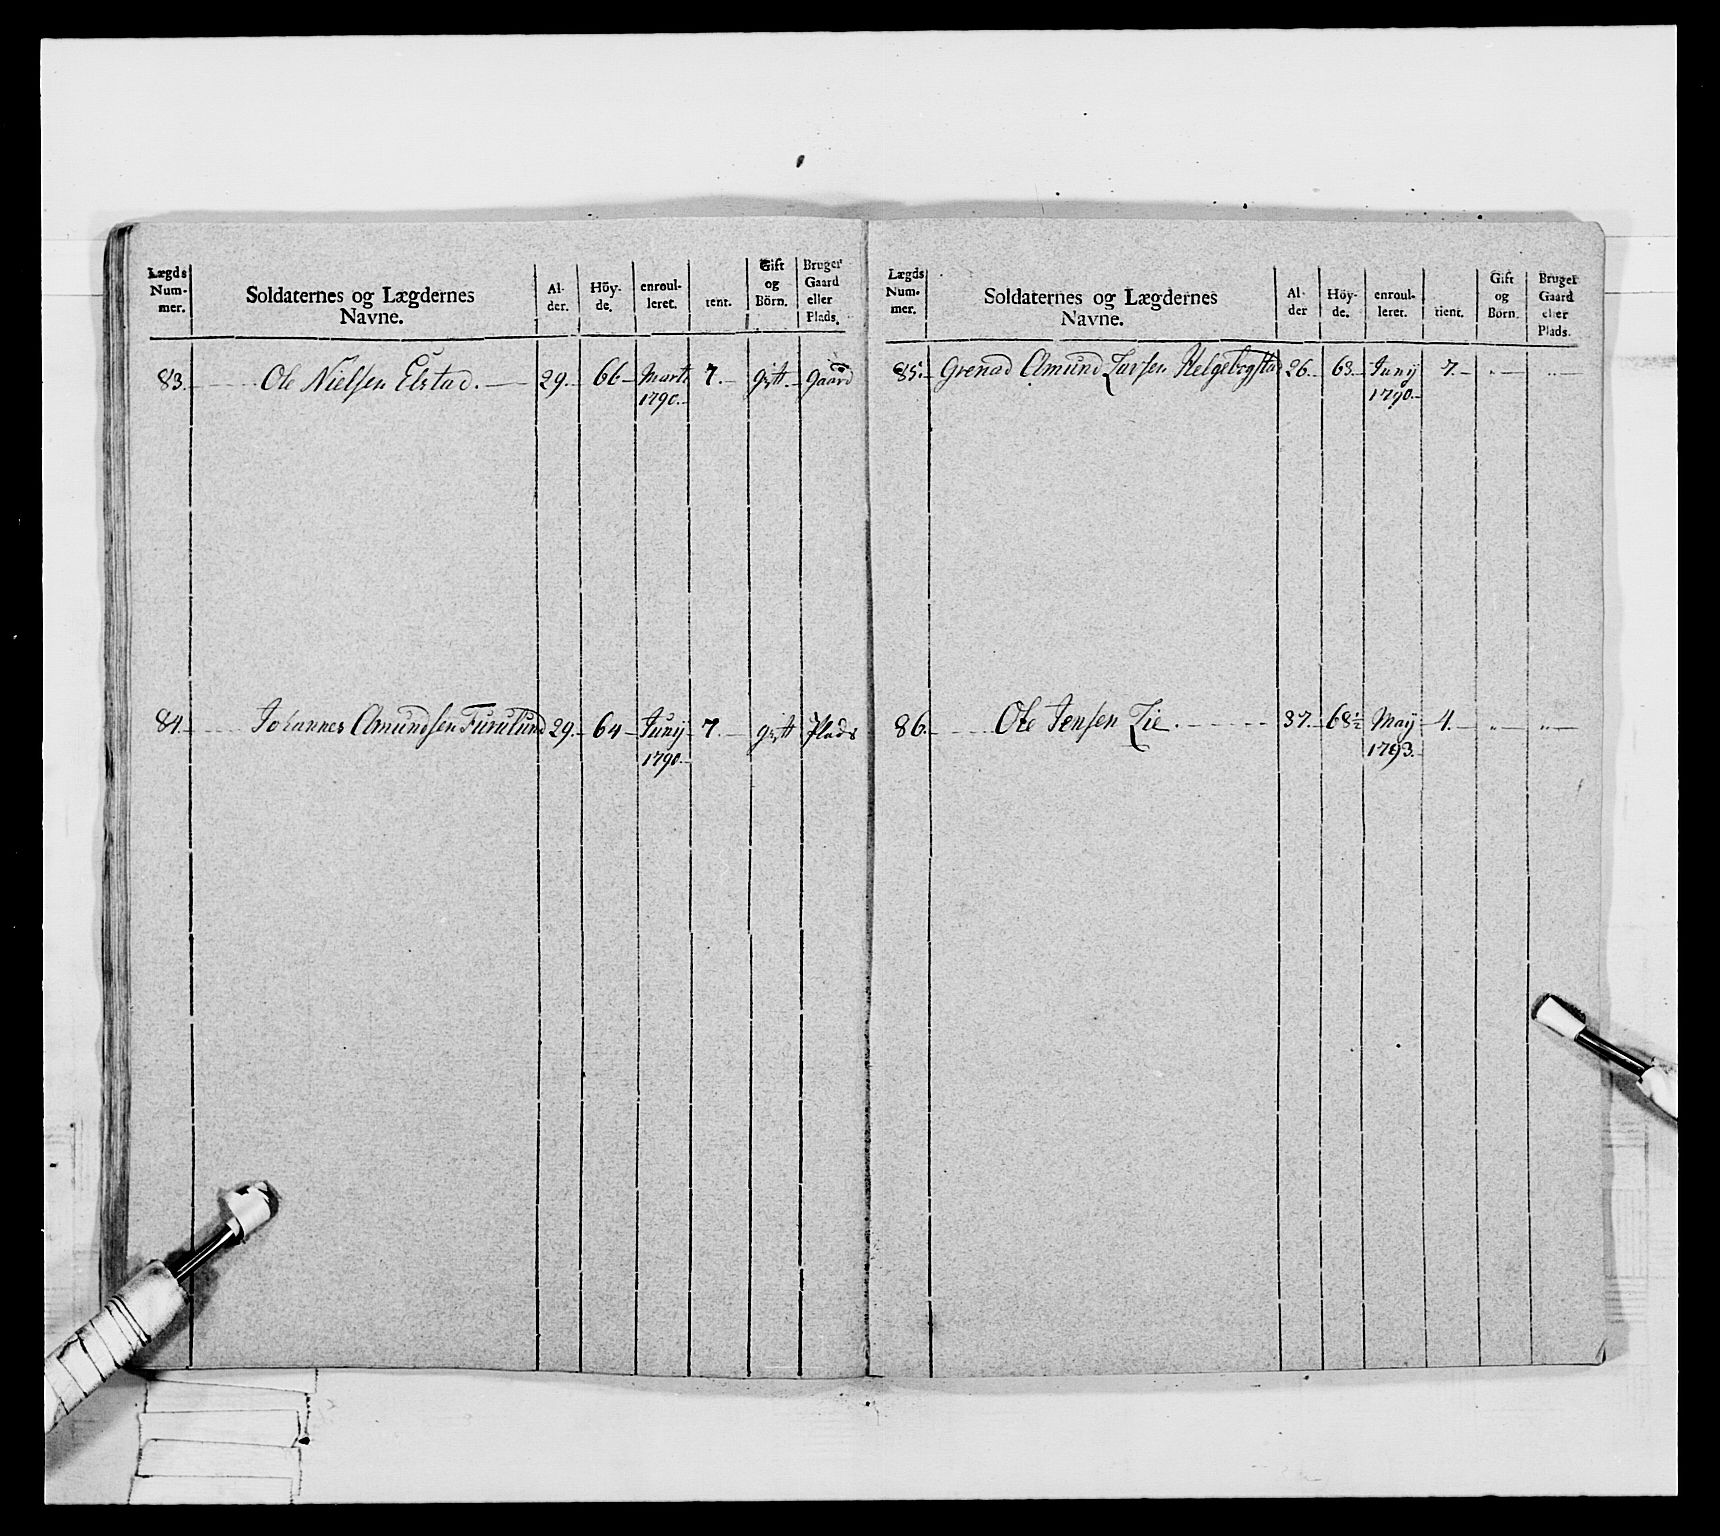 Lægds Num- mer. Soldaternes og Lægdernes Navne. Al- der. Höy- de. enroul- leret. tent. Gift og Börn. Bruger Gaard eller Plads.
83. Ole Nielsen Elstad. 29. 66 Marti 7. gift. gaard
1790.
84. Johannes Amundsen Furulund 29. 64 Junij 7. gift Plads
1790.
Lægds Num- mer. Soldaternes og Lægdernes Navne. Al- der Höy- de. enroul- leret. tient. Gift og Börn. Bruger Gaard eller Plads.
85. Grenad Amund Larsen Helgebogstad 26. 63 Junij 7. „ „
1790.
86. Ole Jensen Lie. 37. 68½ Maij 4. „ „
1793.